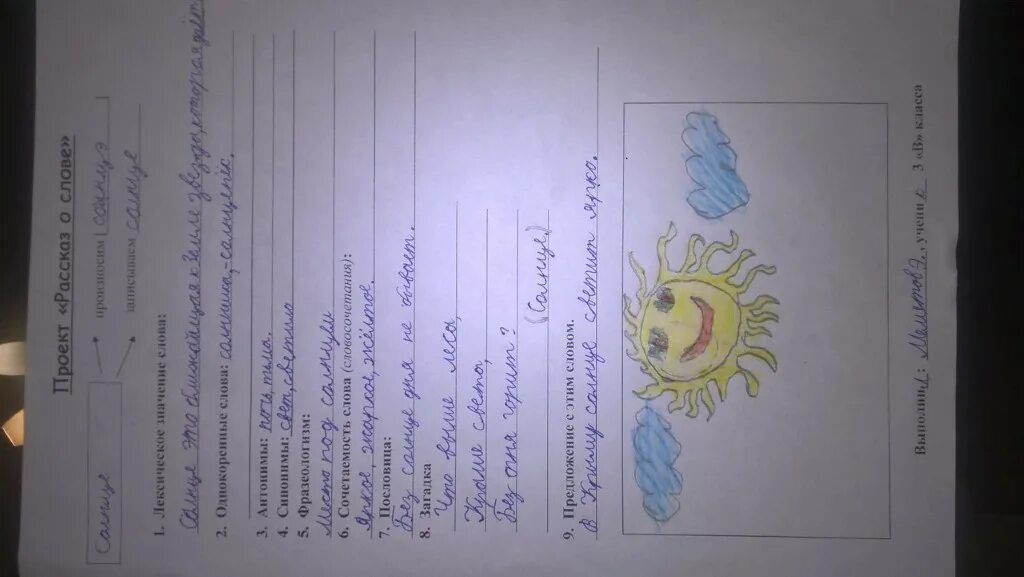 Проект «Рассказ о слове»
Солнце
произносим [сонцэ]
записываем солнце
1. Лексическое значение слова:
Солнце это ближайщая к Земле звезда, которая даёт
2. Однокоренные слова: солнышко, солнцепёк.
3. Антонимы: ночь, тьма.
4. Синонимы: свет, светило
5. Фразеологизм:
Место под солнцем
6. Сочетаемость слова (словосочетания):
Яркое, жаркое, жёлтое.
7. Пословица:
Без солнце дня не бывает.
8. Загадка
Что выше леса,
Краше света,
Без огня горит?
(Солнце)
9. Предложение с этим словом.
В Крыму солнце светит ярко.
Выполнил: Меметов Э., учени 3 «В» класса